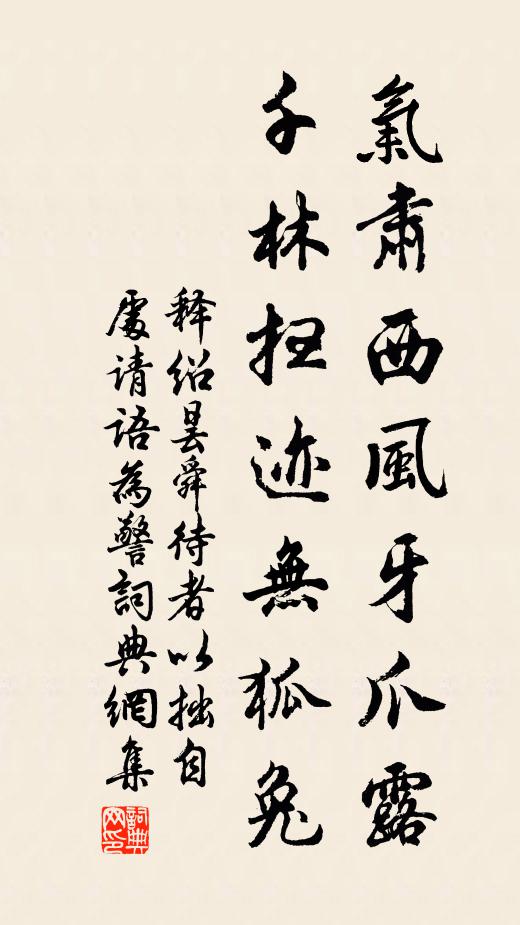 氣肅西風牙爪露
千林扫迹無狐兔
释绍昙舜待者以拙自
處请语為警詞典網集
詞典网印